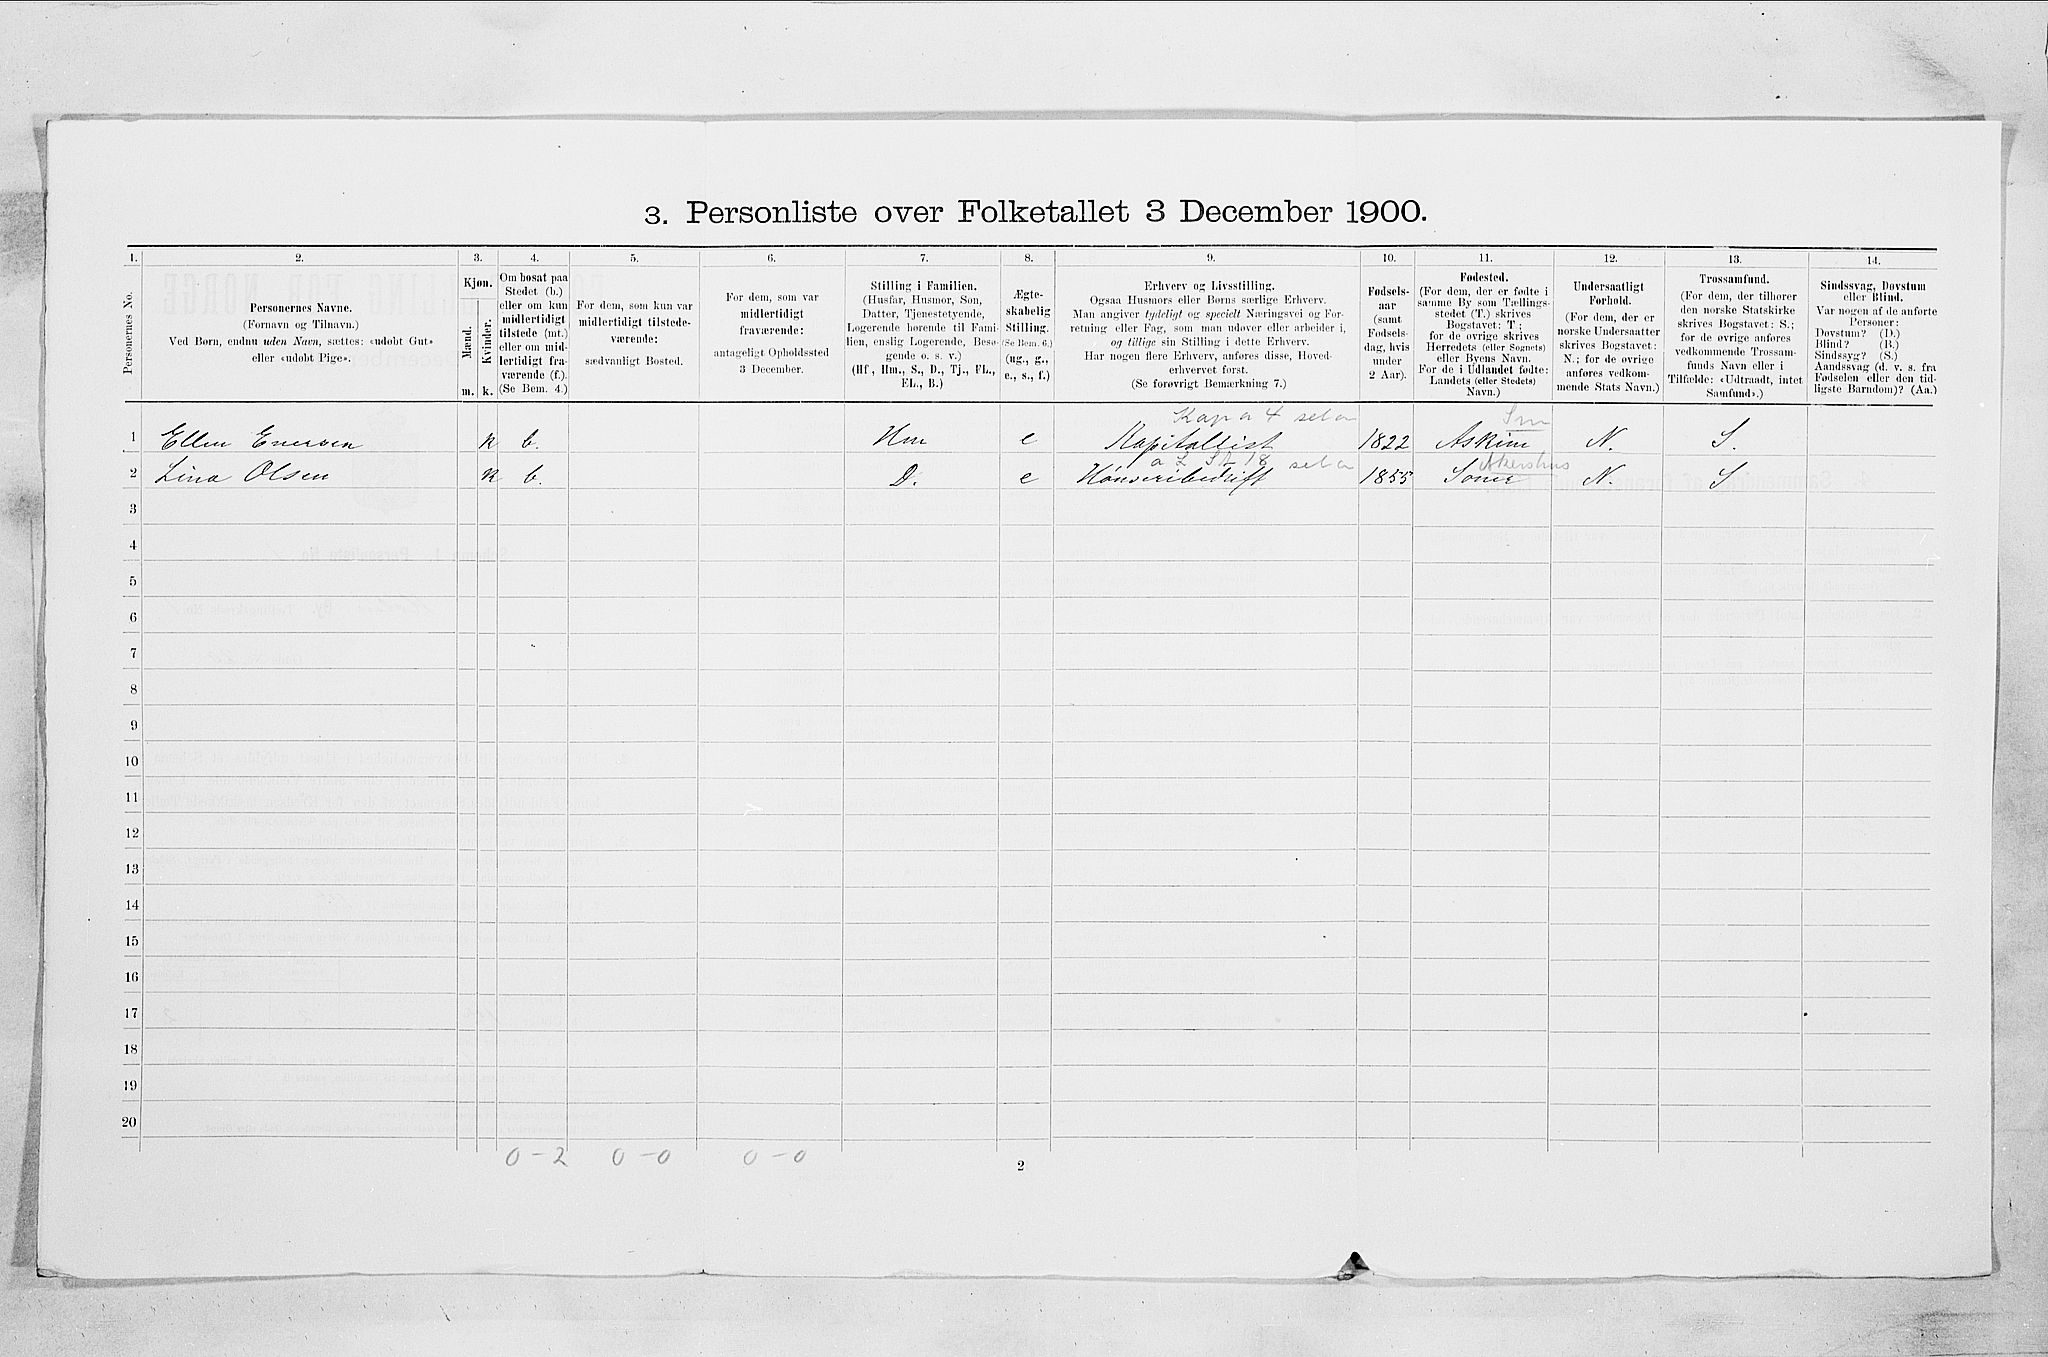 3. Personliste over Folketallet 3 December 1900.
1. 2. 3. 4. 5. 6. 7. 8. 9. 10. 11. 12. 13. 14.
Personernes No.
Personernes Navne.
(Fornavn og Tilnavn.)
Ved Børn, endnu uden Navn, sættes: «udøbt Gut»
eller «udøbt Pige».
Kjøn.
Mænd.
Kvinder.
m. k.
Om bosat paa
Stedet (b.)
eller om kun
midlertidigt
tilstede (mt.)
eller om mid-
lertidigt fra-
værende (f.).
(Se Bem. 4.)
For dem, som kun var
midlertidigt tilstede-
værende:
sædvanligt Bosted.
For dem, som var
midlertidigt
fraværende:
antageligt Opholdssted
3 December.
Stilling i Familien.
(Husfar, Husmor, Søn,
Datter, Tjenestetyende,
Logerende hørende til Fami-
lien, enslig Logerende, Besø-
gende o. s. v.)
(Hf., Hm., S., D., Tj., FL.,
EL., B.)
Ægte-
skabelig
Stilling.
(Se Bem. 6.)
(ug., g.,
e., s., f.)
Erhverv og Livsstilling.
Ogsaa Husmors eller Børns særlige Erhverv.
Man angiver tydeligt og specielt Næringsvei og For-
retning eller Fag, som man udøver eller arbeider i,
og tillige sin Stilling i dette Erhverv.
Har nogen flere Erhverv, anføres disse, Hoved-
erhvervet først.
(Se forøvrigt Bemærkning 7.)
Fødsels-
aar
(samt
Fødsels-
dag, hvis
under
2 Aar).
Fødested.
(For dem, der er fødte i
samme By som Tællings-
stedet (T.) skrives
Bogstavet: T.;
for de øvrige skrives
Herredets (eller Sognets)
eller Byens Navn.
For de i Udlandet fødte:
Landets (eller Stedets)
Navn.)
Undersaatligt
Forhold.
(For dem, der er
norske Undersaatter
skrives Bogstavet:
N.; for de øvrige
anføres vedkom-
mende Stats Navn.)
Trossamfund.
(For dem, der tilhører
den norske Statskirke
skrives Bogstavet: S.;
for de øvrige anføres
vedkommende Trossam-
funds Navn eller i
Tilfælde: «Udtraadt, intet
Samfund».)
Sindssvag, Døvstum
eller Blind.
Var nogen af de anførte
Personer:
Døvstum? (D.)
Blind? (B.)
Sindssyg? (S.)
Aandssvag (d. v. s. fra
Fødselen eller den tid-
ligste Barndom)? (Aa.)
Sm
1 Ellen Enersen k b. Hm e Kapitallist 1822 Askim N. S.
Akershus
2 Lina Olsen k b. D. e Hønseribedrift 1855 Soner N. S
3
4
5
6
7
8
9
10
11
12
13
14
15
16
17
18
19
20
0 - 2 0 - 0 0 - 0
2